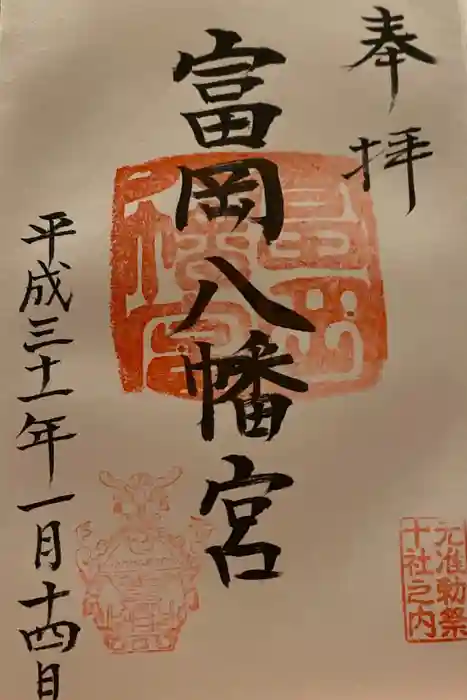 奉拝
富岡八幡宮
平成三十一年一月十四日
元准勅祭
十社之内